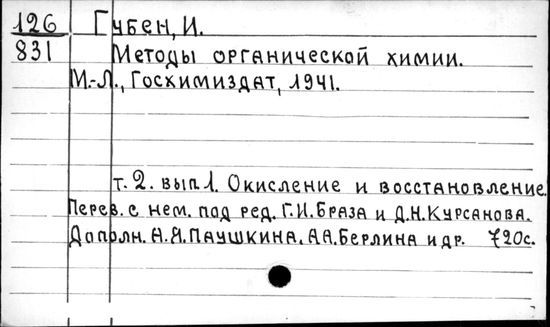 126 Губен, И.
831 Методы органической химии.
М.-Л., Госхимиздат, 1941.
т. 2. вып 1. Окисление и восстановление.
Перев. с нем. под ред. Г.И.Браза и Д.Н.Курсанова.
Дополн. А.Я.Паушкина, А.А.Берлина и др. 720с.